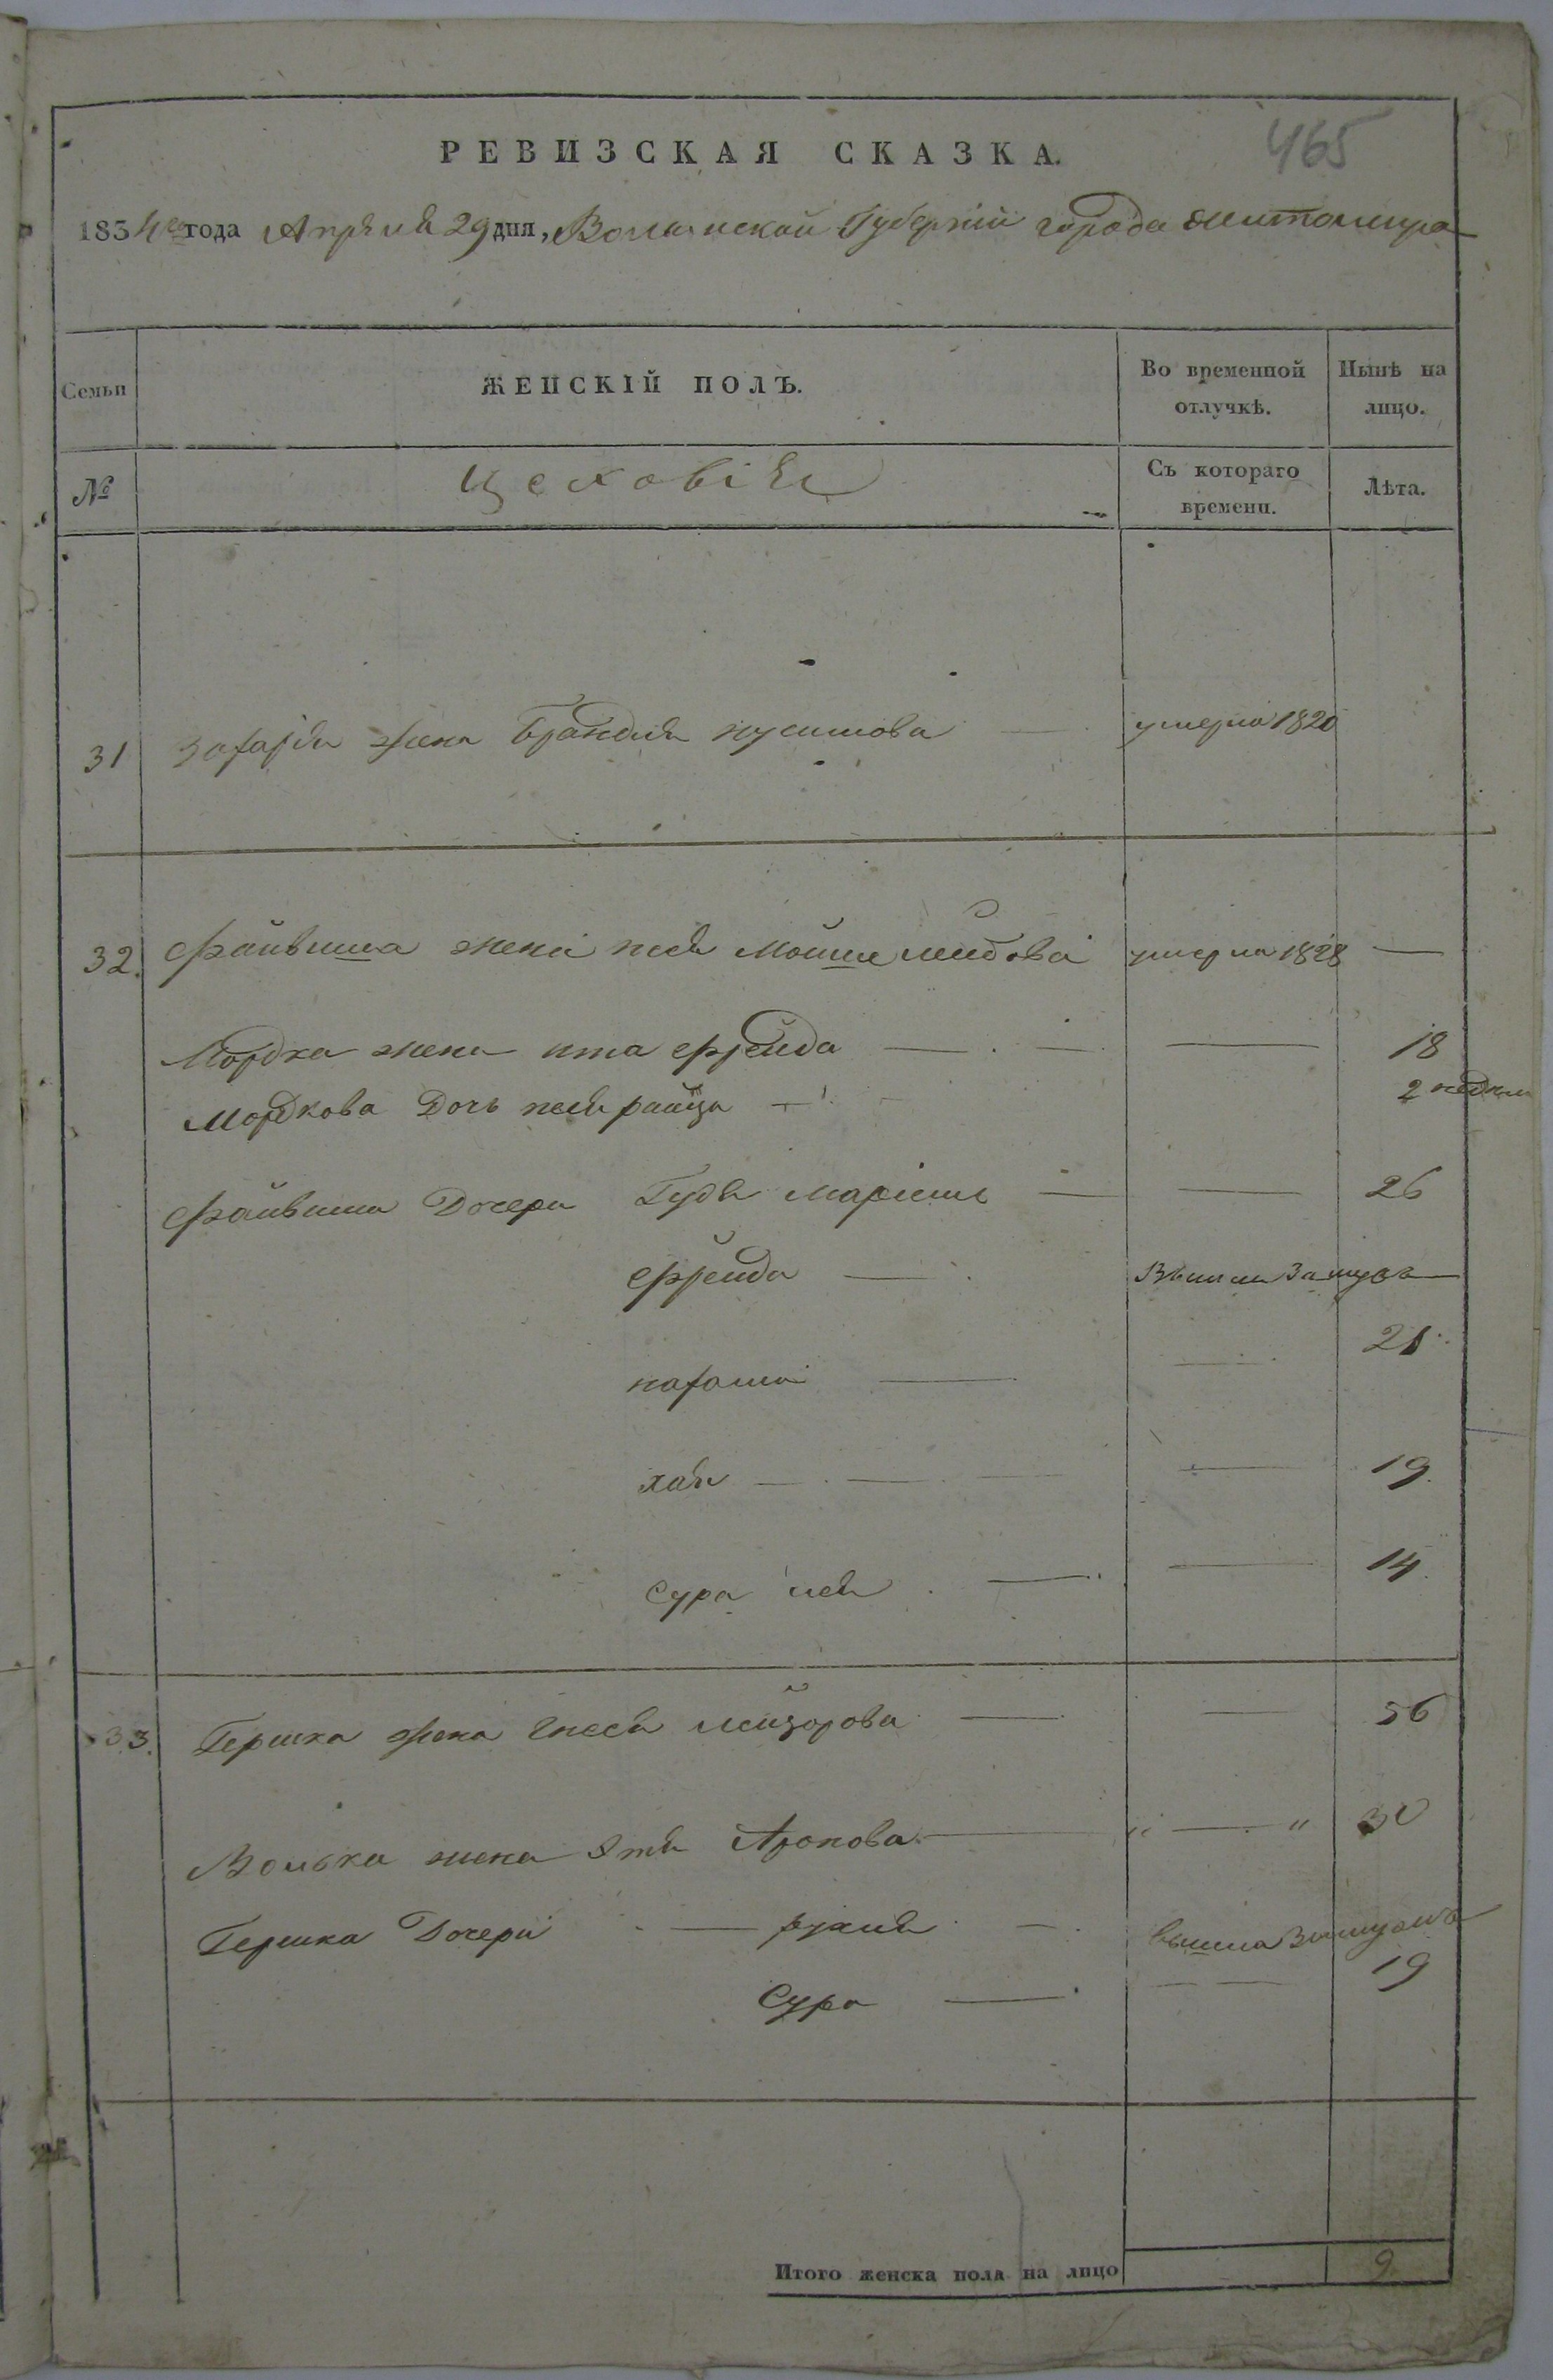 465
РЕВИЗСКАЯ СКАЗКА.
1834го года Апреля 29 дня, Волынской Губерніи города Житомира
Семьи ЖЕНСКІЙ ПОЛЪ. Во временной отлучкѣ. Нынѣ на лицо.
№ Цеховіи Съ котораго времени. Лѣта.
31 жена Брандля умерла 1820
32. Файвиша жена песя Мошелейбова умерла 1828 —
Мордка жена ита фрейда — — — 18
Мордкова Дочь песя райца — 2 недели
Файвиша Дочери Гудя Маріемъ — — 26
Фрейда — Вышла Замужъ
— — 21
хая — — — 19.
Сура лея — — 14.
33. Гершка жена Гнеся Лейзорова — — 56
Волька жена Этя Аронова — " — " 30
Гершка Дочери — рухля — вышла Замужъ
Сура — — — 19
Итого женска пола на лицо 9